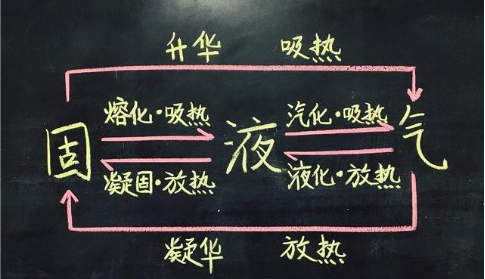 升华 吸热
熔化·吸热 汽化·吸热
固 液 气
凝固·放热 液化·放热
凝华 放热